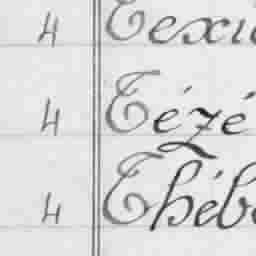 4 Texi
4 Tézé
4 Théb